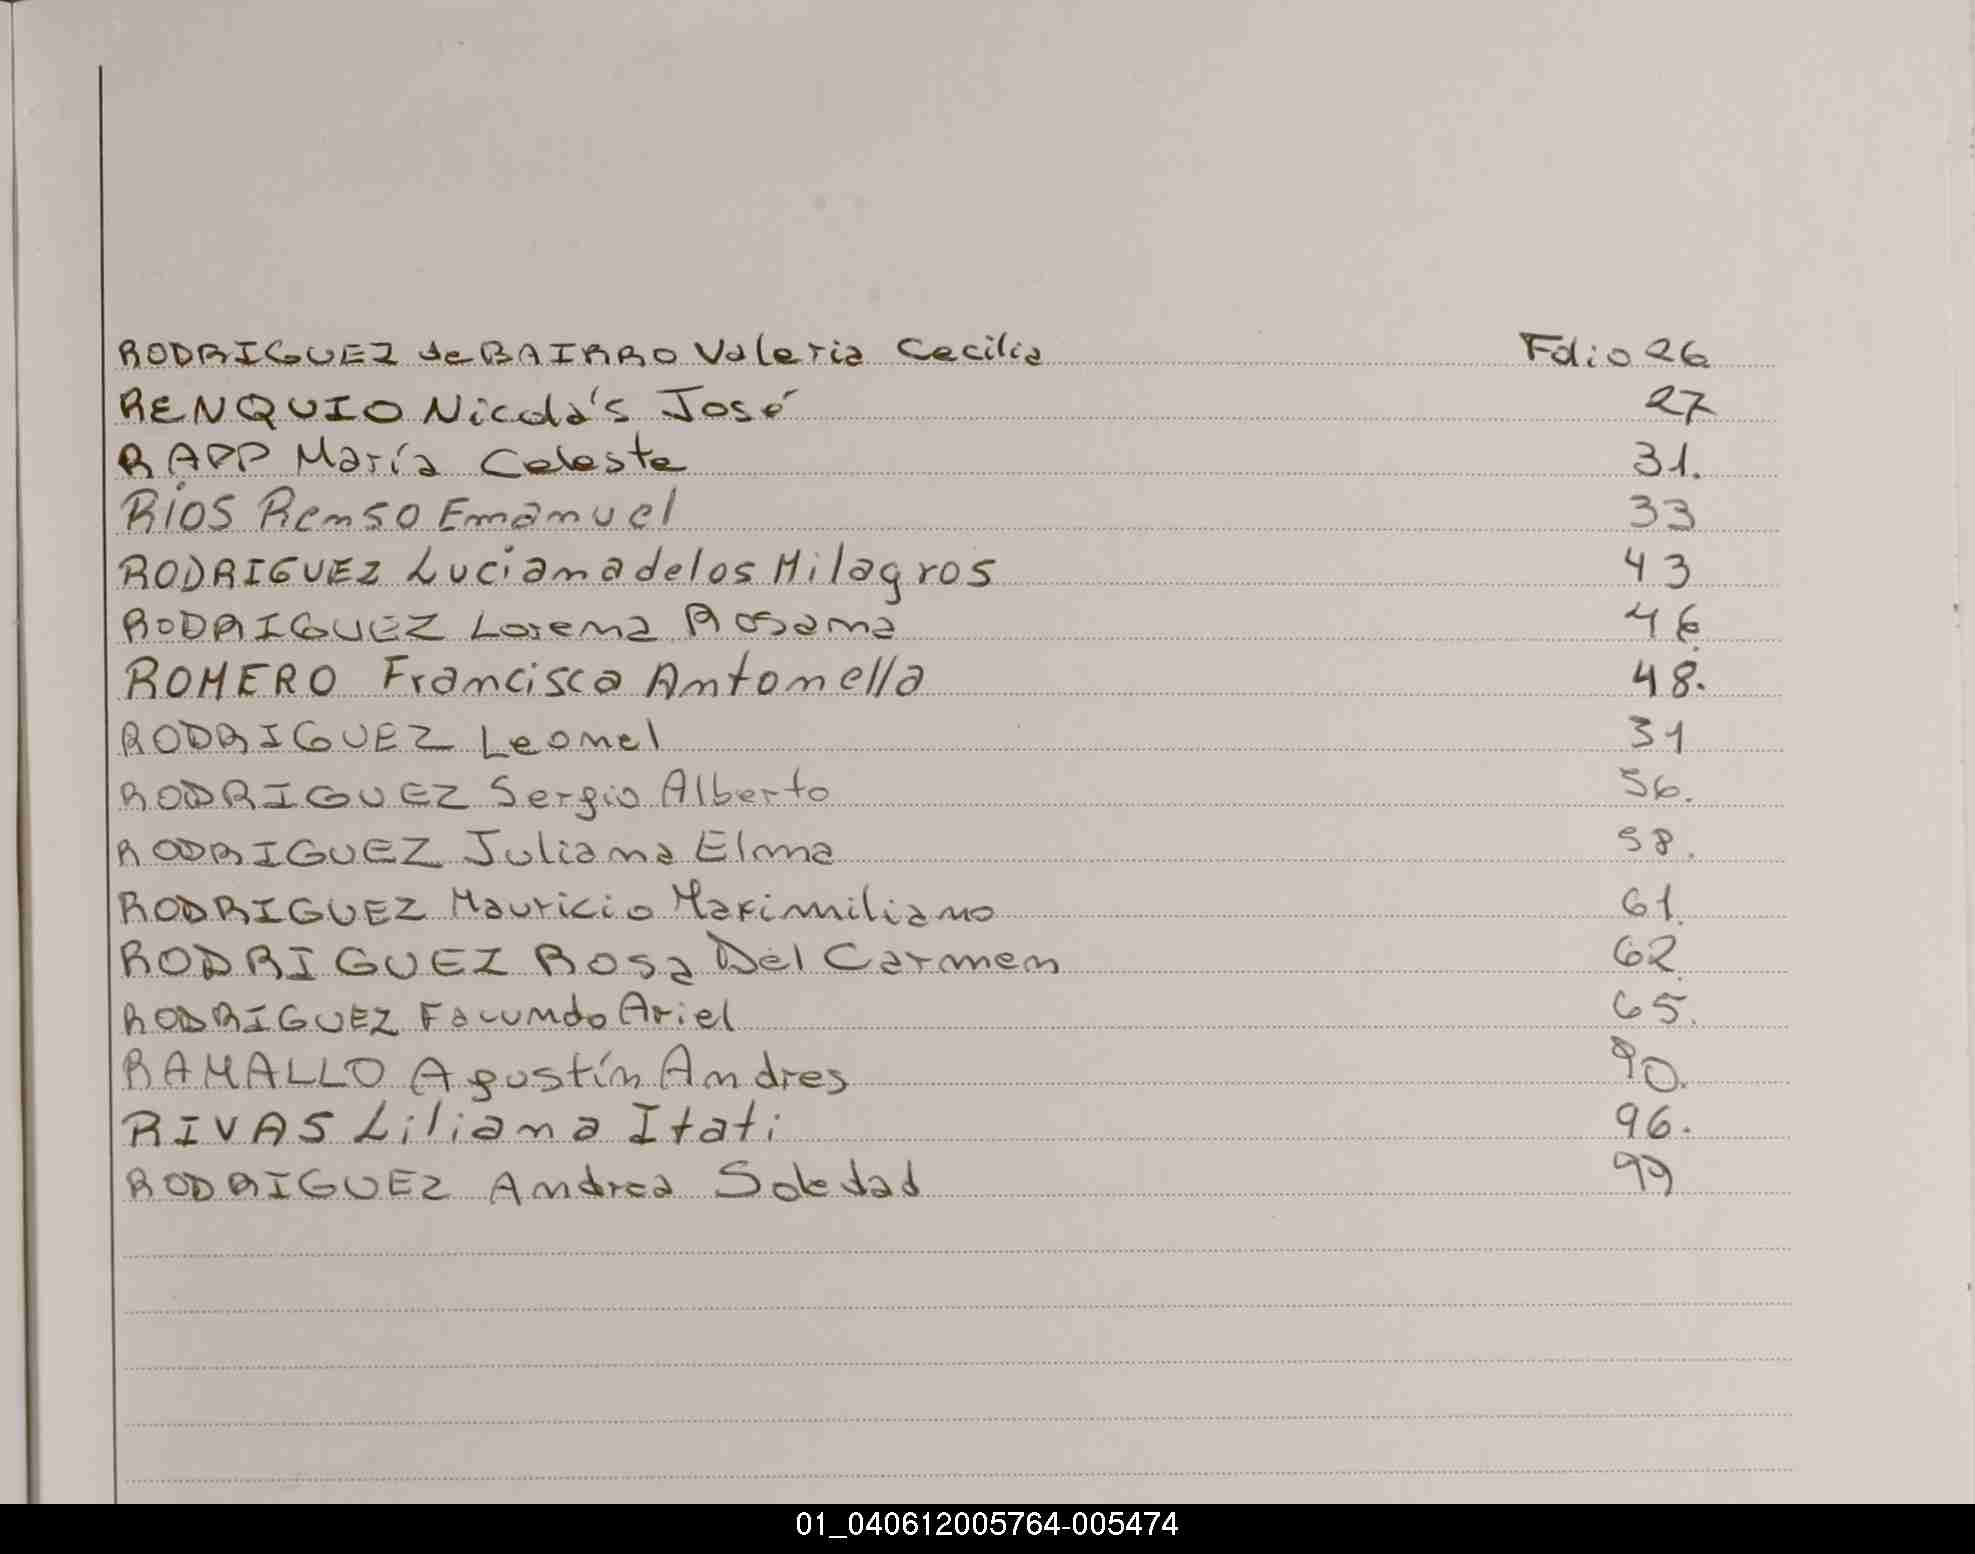 RODRIGUEZ de BAIRRO Valeria Cecilia Folio 26
RENQUIO Nicolá's José 27
RAPP María Celeste 31.
RÍOS Renso Emanuel 33
RODRIGUEZ Luciana de los Milagros 43
RODRIGUEZ Lorena Rosana 46.
ROMERO Francisca Antonella 48.
RODRIGUEZ Leonel 51
RODRIGUEZ Sergio Alberto 56.
RODRIGUEZ Juliana Elma 58.
RODRIGUEZ Mauricio Maximiliano 61.
RODRIGUEZ Rosa Del Carmen 62.
RODRIGUEZ Facundo Ariel 65.
RAMALLO Agustín Andres 90.
RIVAS Liliana Itati 96.
RODRIGUEZ Andrea Soledad 99
01_040612005764-005474